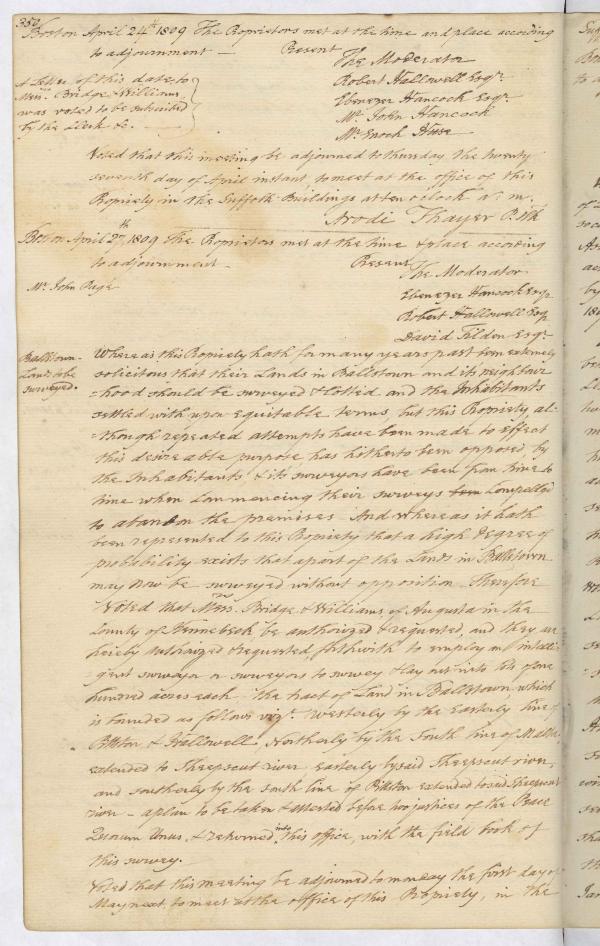 350.
Boston April 24th 1809 The Proprietors met at the time and place according
to adjournment — Present
The Moderator
Robert Hallowell Esqr
Ebenezer Hancock Esqr
Mr John Hancock
Mr Enoch Huse
A Letter of this date to
Messrs Bridge & Williams
was voted to be subscribed
by the Clerk &c.
Voted that this meeting be adjourned to thursday the twenty
seventh day of April instant, to meet at the office of this
Propriety in the Suffolk Buildings at ten o'clock A: m.
Arodi Thayer P. Clk
Boston April 27th 1809 The Proprietors met at the time & place according
to adjournment — Present
The Moderator
Mr John Page
Ebenezer Hancock Esqr
Robert Hallowell Esqr
David Tilden Esqr
Balltown
Lands to be
surveyed.
Whereas this Propriety hath for many years past been extremely
solicitous that their Lands in Balltown and its neighbour
=hood should be surveyed & lotted and the Inhabitants
settled with upon equitable terms, but this Propriety al-
=though repeated attempts have been made to effect
this desireable purpose, has hitherto been opposed, by
the Inhabitants & its surveyors have been from time to
time when Commencing their surveys Compelled
to abandon the premises. And whereas it hath
been represented to this Propriety that a high degree of
probability exists that a part of the Lands in Balltown
may now be surveyed without opposition. Therefore
Voted that Messrs Bridge & Williams of Augusta in the
County of Kennebeck be authorized & requested, and they are
hereby authorized & requested forthwith to employ an intelli-
gent surveyor or surveyors to survey & lay out into lots of one
hundred acres each the tract of Land in Balltown which
is bounded as follows vizt. Westerly by the Easterly line of
Pittston & Hallowell, Northerly by the south line of Malta
extended to Sheepscut river easterly by said Sheepscut river,
and southerly by the south line of Pittston extended to said Sheepscut
river — a plan to be taken & attested before two justices of the Peace
Quorum Unus, & returned into this office, with the field book of
this survey.
Voted that this meeting be adjourned to monday the first day of
May next, to meet at the office of this Propriety, in the